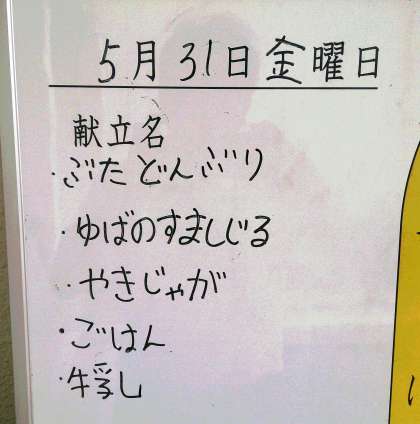 5月31日金曜日
献立名
・ぶたどんぶり
・ゆばのすましじる
・やきじゃが
・ごはん
・牛乳